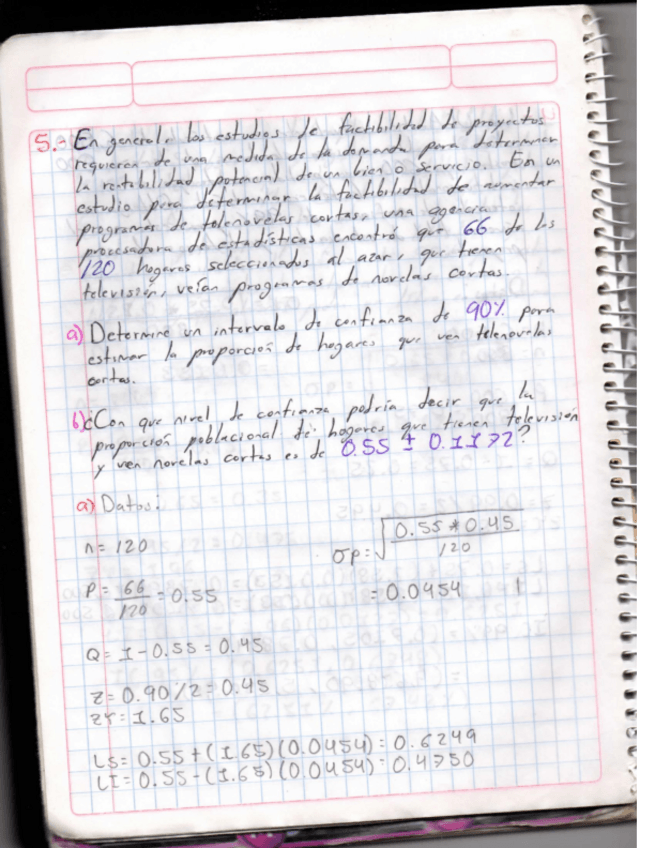 5.- En general, los estudios de factibilidad de proyectos
requieren de una medida de la demanda para determinar
la rentabilidad potencial de un bien o servicio. En un
estudio para determinar la factibilidad de aumentar
programas de telenovelas cortas, una agencia
procesadora de estadísticas encontró que 66 de los
120 hogares seleccionados al azar, que tienen
televisión, veían programas de novelas cortas.
a) Determine un intervalo de confianza de 90% para
estimar la proporción de hogares que ven telenovelas
cortas.
b) ¿Con que nivel de confianza podría decir que la
proporción poblacional de hogares que tienen televisión
y ven novelas cortas es de 0.55 ± 0.1172?
a) Datos:
n = 120
σp = √(0.55 * 0.45 / 120)
P = 66/120 = 0.55
= 0.0454
Q = 1 - 0.55 = 0.45
Z = 0.90 / 2 = 0.45
zt = 1.65
LS = 0.55 + (1.65)(0.0454) = 0.6249
LI = 0.55 - (1.65)(0.0454) = 0.4750